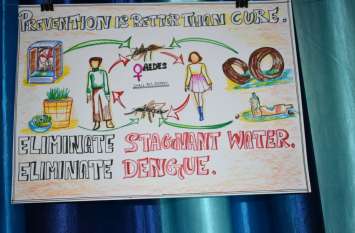 PREVENTION IS BETTER THAN CURE.
♀ AEDES
ELIMINATE STAGNANT WATER.
ELIMINATE DENGUE.